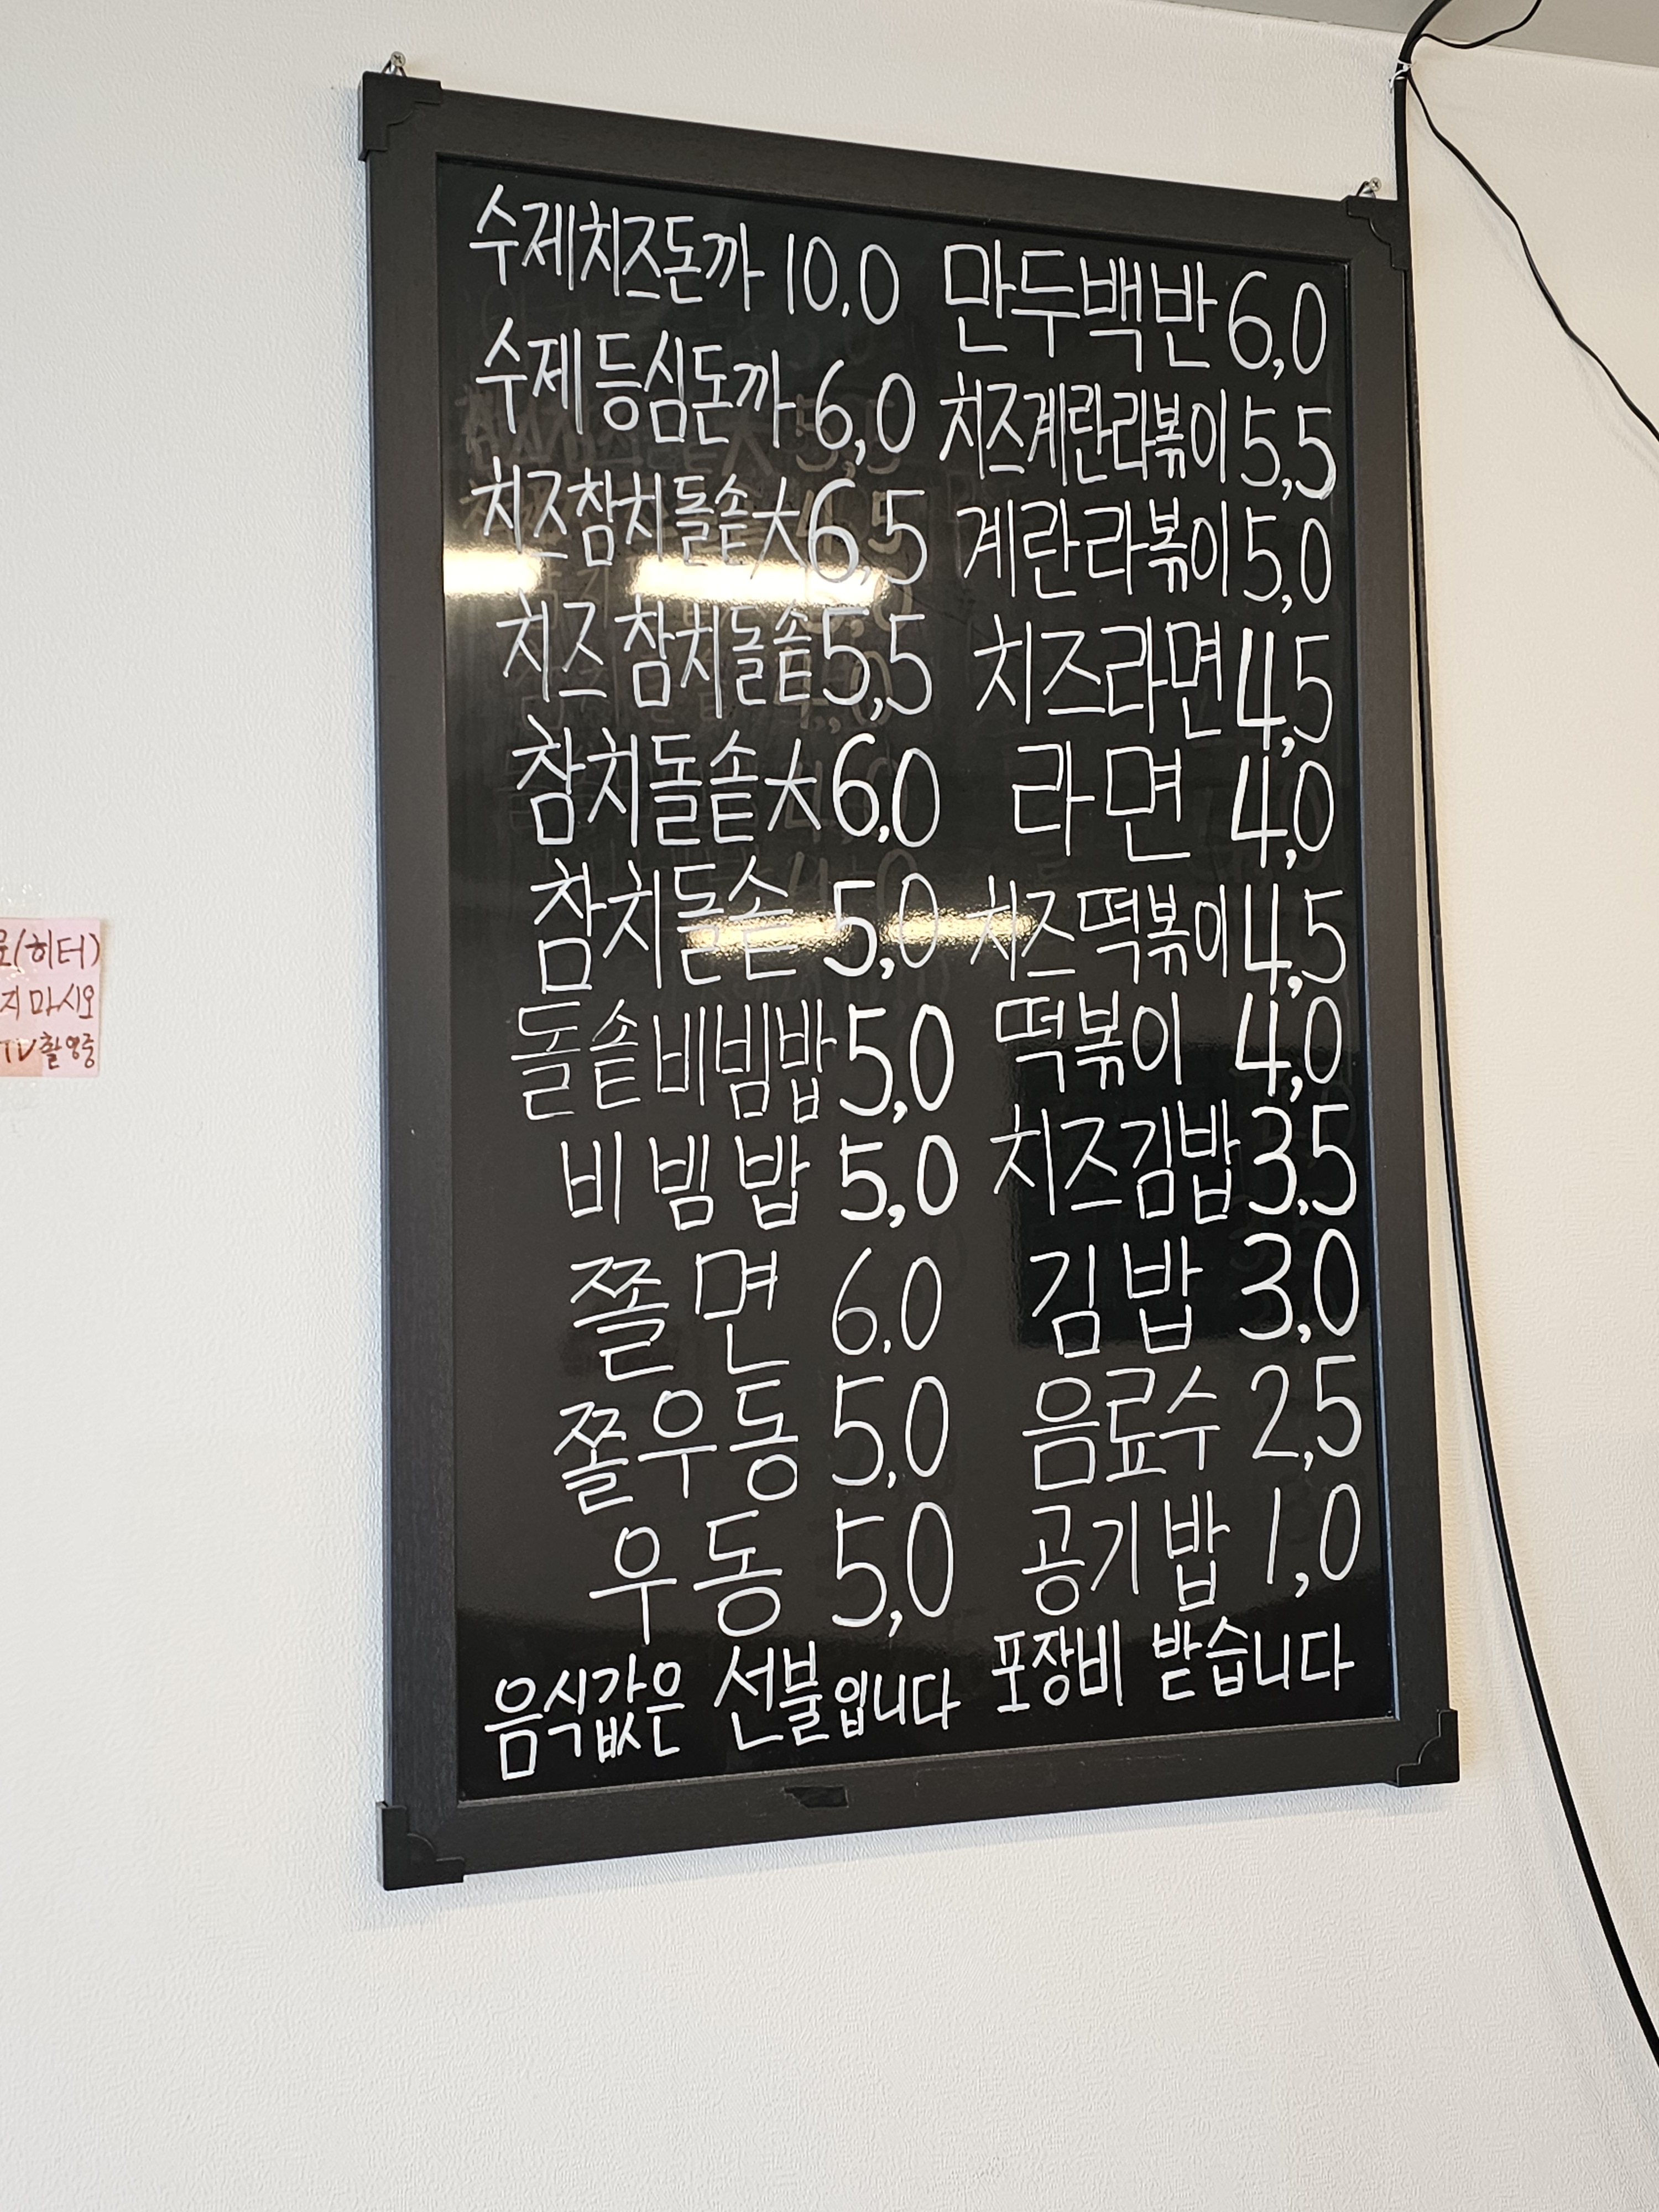 수제치즈돈까 10.0
수제등심돈까 6,0
치즈참치돌솥大 6,5
치즈참치돌솥 5,5
참치돌솥大 6,0
참치돌솥 5,0
돌솥비빔밥 5,0
비빔밥 5,0
쫄면 6.0
쫄우동 5,0
우동 5,0
음식값은 선불입니다
만두백반 6,0
치즈계란라볶이 5,5
계란라볶이 5,0
치즈라면 4,5
라면 4,0
치즈떡볶이 4,5
떡볶이 4,0
치즈김밥 3.5
김밥 3,0
음료수 2,5
공기밥 1,0
포장비 받습니다
(히터)
지 마시오
TV촬영중